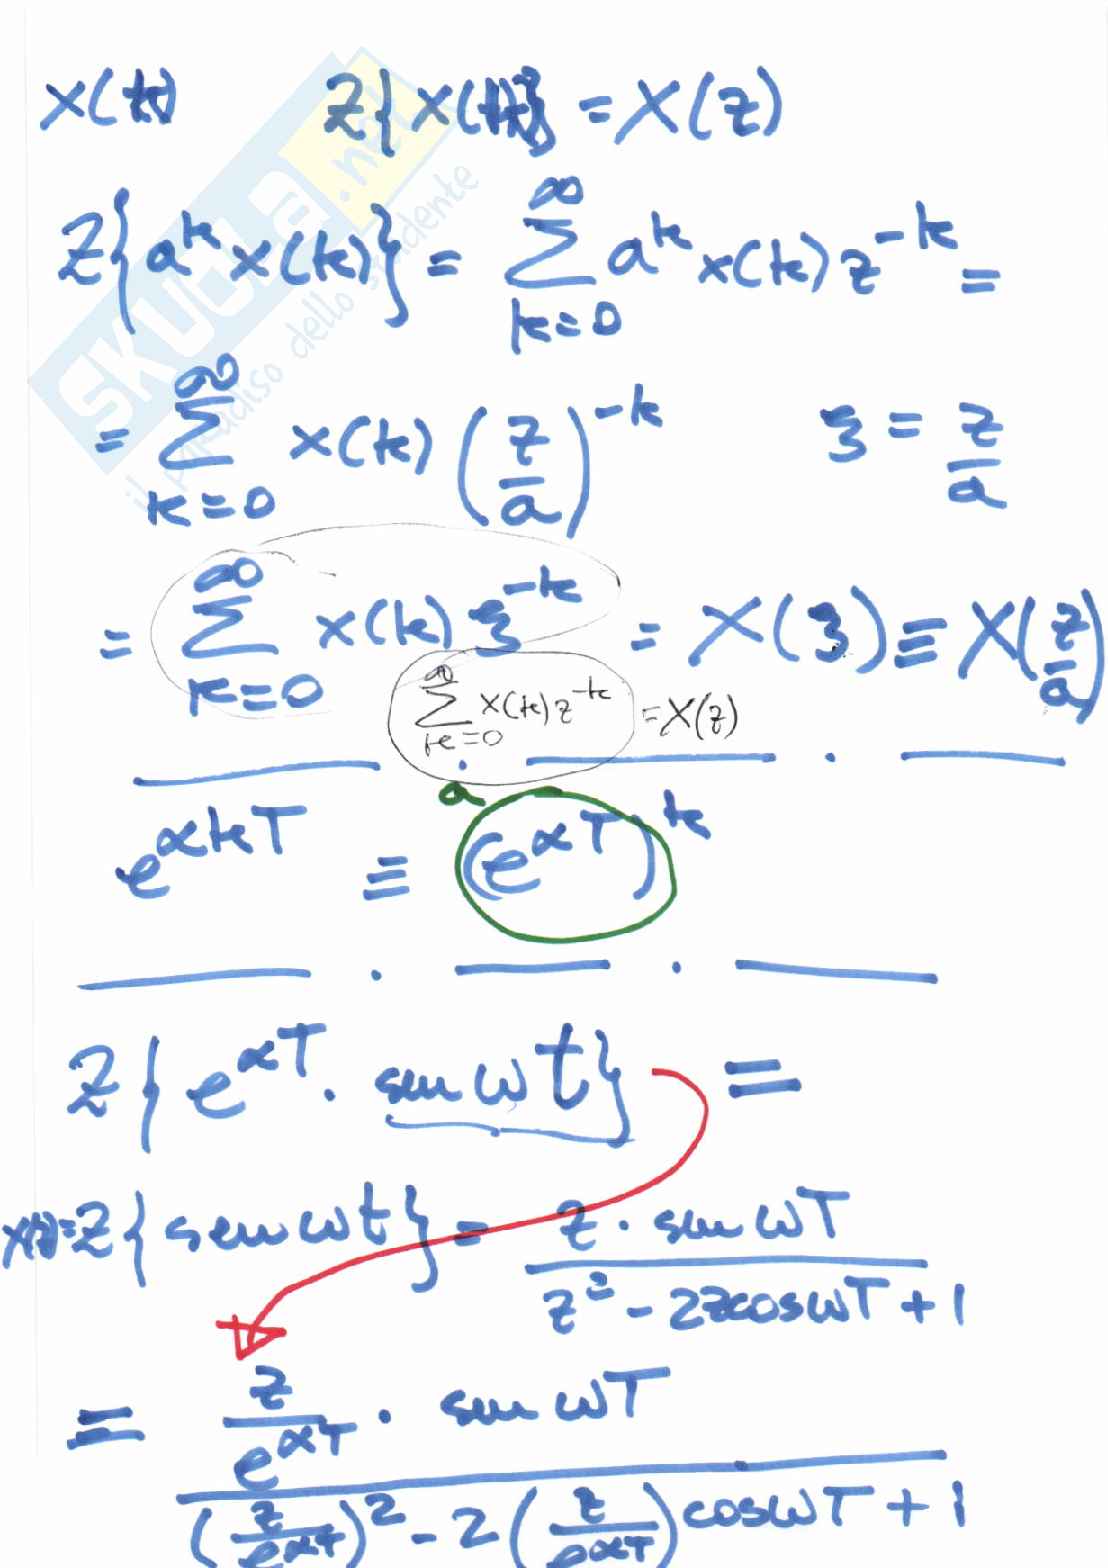 x(k) Z{x(k)} = X(z)
Z{a^k x(k)} = ∑_{k=0}^{∞} a^k x(k) z^{-k} =
= ∑_{k=0}^{∞} x(k) (z/a)^{-k} ξ = z/a
= ∑_{k=0}^{∞} x(k) ξ^{-k} = X(ξ) ≡ X(z/a)
∑_{k=0}^{∞} x(k) z^{-k} = X(z)
a
e^{αkT} ≡ (e^{αT})^k
Z{e^{αT} · sen ωt} =
X(z) = Z{sen ωt} = z · sen ωT / z² - 2z cos ωT + 1
= z/e^{αT} · sen ωT / (z/e^{αT})² - 2(z/e^{αT}) cos ωT + 1
SKUOLA.net
il paradiso dello studente